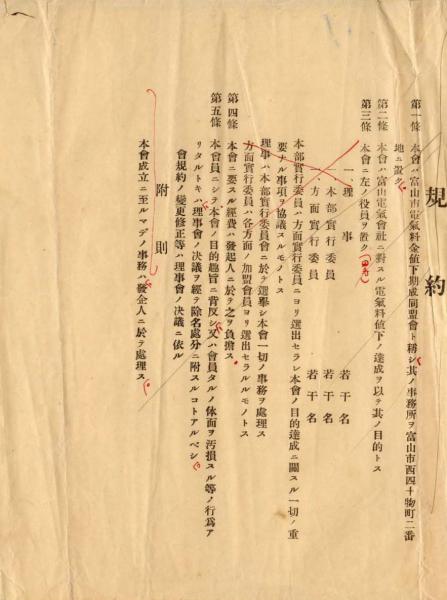 規約
第一條 本會ハ富山市電氣料金値下期成同盟會ト稱シ其ノ事務所ヲ富山市西四十物町二番
地ニ置ク
第二條 本會ハ富山電氣會社ニ對スル電氣料値下ノ達成ヲ以テ其ノ目的トス
第三條 本會ニ左ノ役員ヲ置ク
一、理事 若干名
本部實行委員 若干名
方面實行委員 若干名
本部實行委員ハ方面實行委員ニヨリ選出セラレ本會ノ目的達成ニ關スル一切ノ重
要ナル事項ヲ協議スルモノトス
理事ハ本部實行委員會ニ於テ選擧シ本會一切ノ事務ヲ處理ス
方面實行委員ハ各方面ノ加盟會員ヨリ選出セラルルモノトス
第四條 本會ニ要スル經費ハ發起人ニ於テ之ヲ負擔ス
第五條 本會員ニシテ本會ノ目的趣旨ニ背反シ又ハ會員タルノ体面ヲ汚損スル等ノ行爲ア
リタルトキハ理事會ノ決議ヲ經テ除名處分ニ附スルコトアルベシ
會規約ノ變更修正等ハ理事會ノ決議ニ依ル
附則
本會成立ニ至ルマデノ事務ハ發企人ニ於テ處理ス